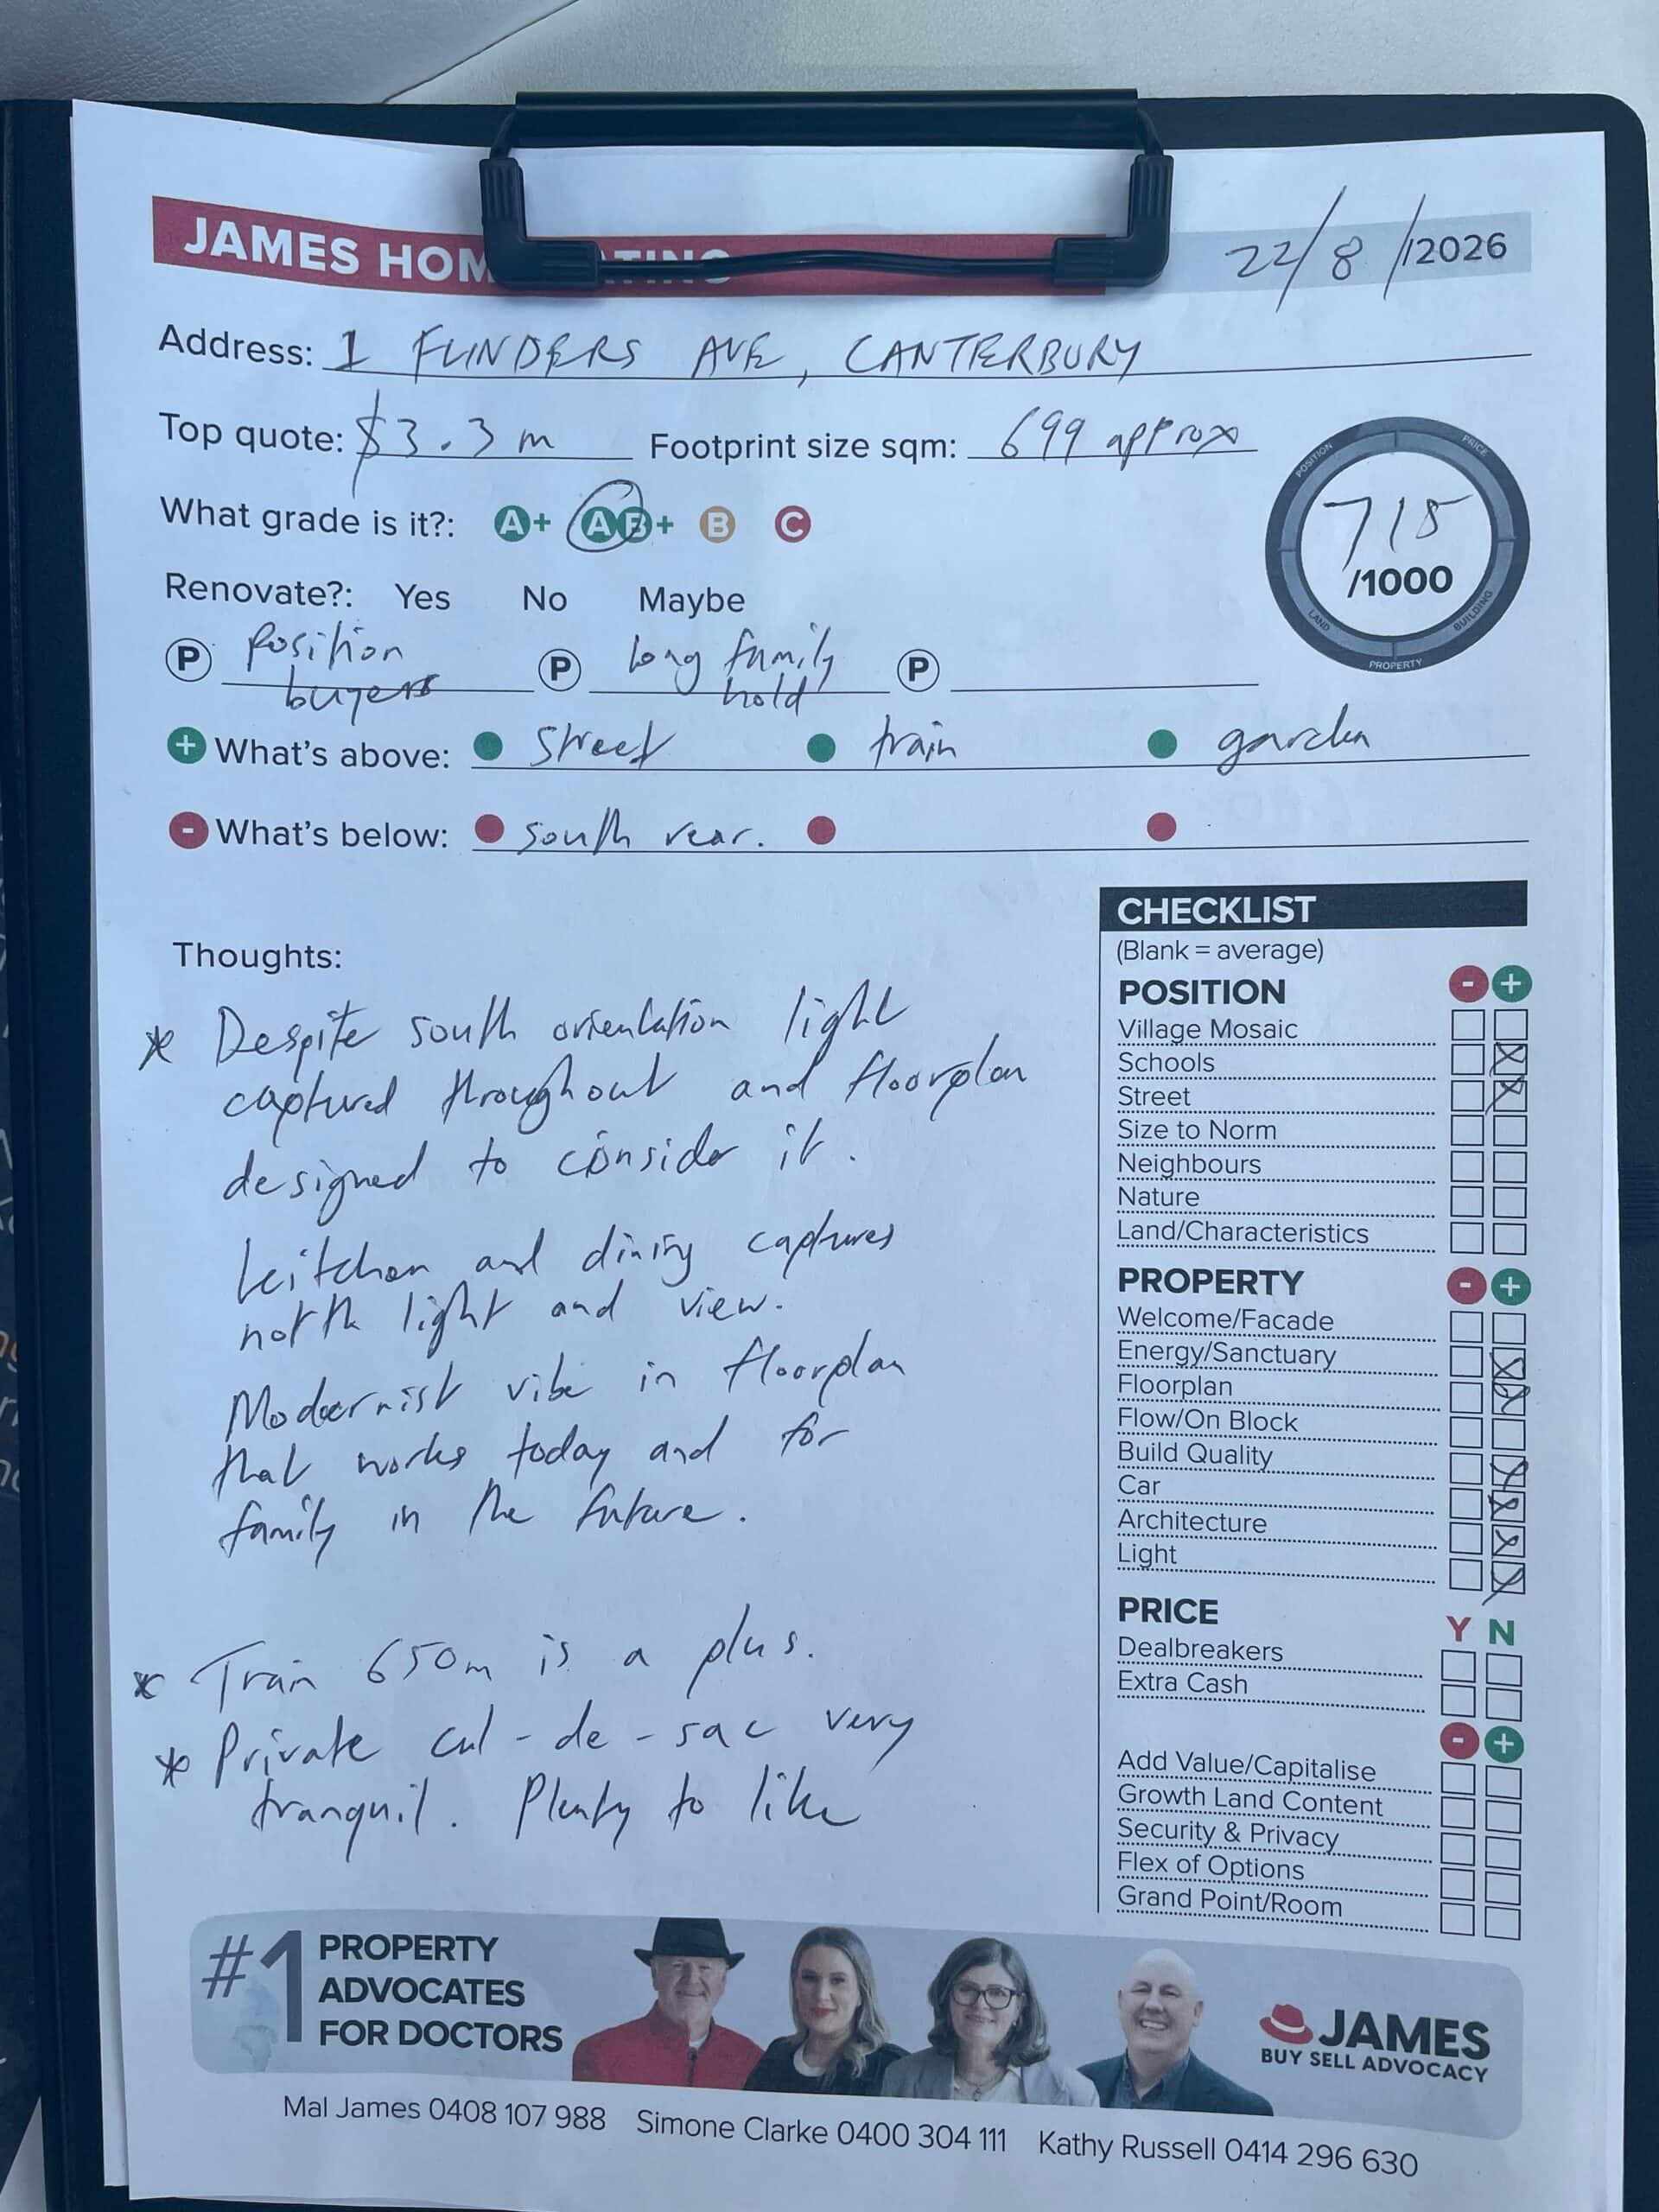 JAMES HOM ATING
22/8/12026
Address: 1 FLINDERS AVE, CANTERBURY
Top quote: $3.3m Footprint size sqm: 699 approx
POSITION PRICE
What grade is it?: A+ A B+ B C
715
/1000
LAND BUILDING
PROPERTY
Renovate?: Yes No Maybe
P Position buyers P long family hold P
+ What's above: street train garden
- What's below: south rear.
CHECKLIST
(Blank = average)
POSITION - +
Village Mosaic
Schools
Street
Size to Norm
Neighbours
Nature
Land/Characteristics
PROPERTY - +
Welcome/Facade
Energy/Sanctuary
Floorplan
Flow/On Block
Build Quality
Car
Architecture
Light
PRICE Y N
Dealbreakers
Extra Cash
- +
Add Value/Capitalise
Growth Land Content
Security & Privacy
Flex of Options
Grand Point/Room
Thoughts:
* Despite south orientation light
captured throughout and floorplan
designed to consider it.
kitchen and dining captures
north light and view.
Modernist vibe in floorplan
that works today and for
family in the future.
* Train 650m is a plus.
* Private cul-de-sac very
tranquil. Plenty to like
#1 PROPERTY
ADVOCATES
FOR DOCTORS
JAMES
BUY SELL ADVOCACY
Mal James 0408 107 988 Simone Clarke 0400 304 111 Kathy Russell 0414 296 630